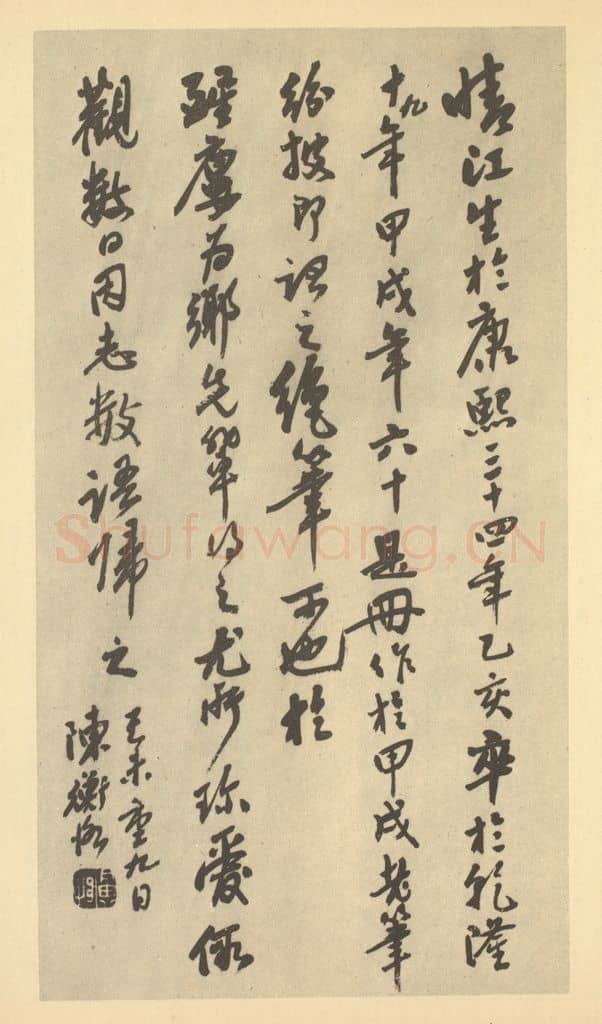 晴江生於康熙三十四年乙亥卒於乾隆
十九年甲戌年六十是冊作於甲戌老筆
紛披即謂之絕筆可也於
醒廬為鄉先輩得之尤所珍愛假
觀數日因志數語歸之
己未重九日
陳衡恪
Shufawang.CN